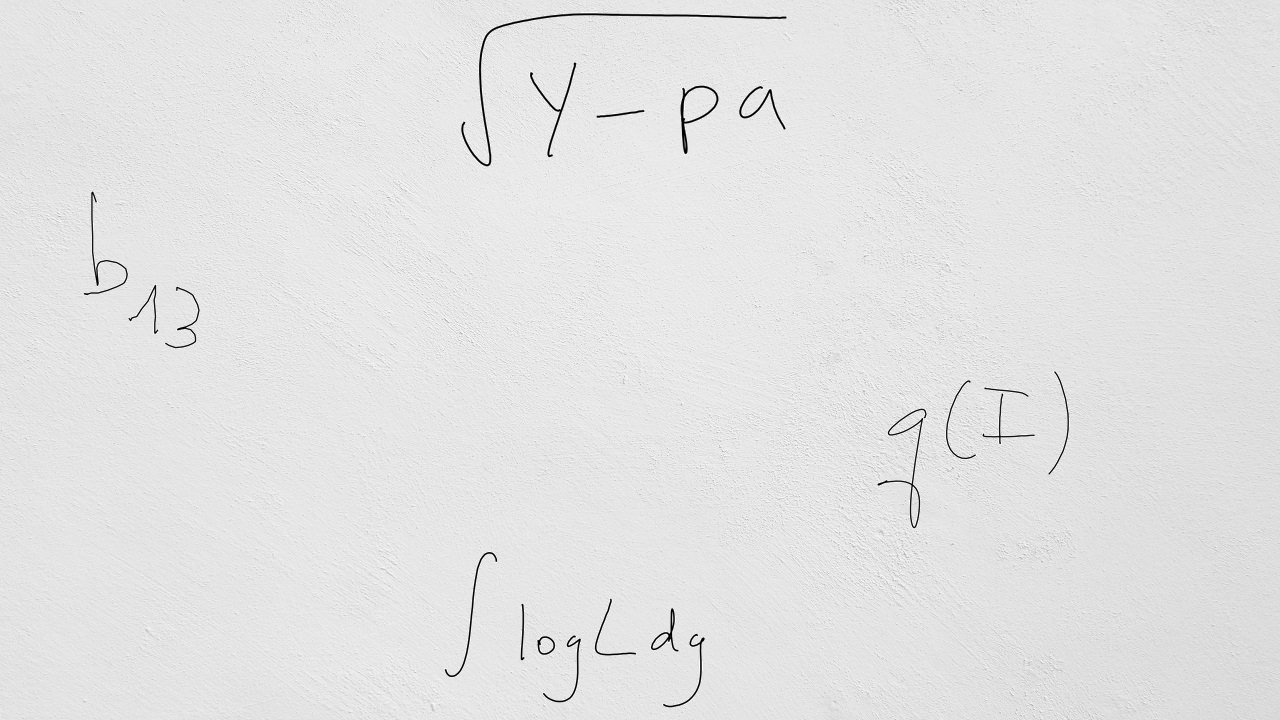 √(Y - pa)
b₁₃
q(I)
∫ log L dg